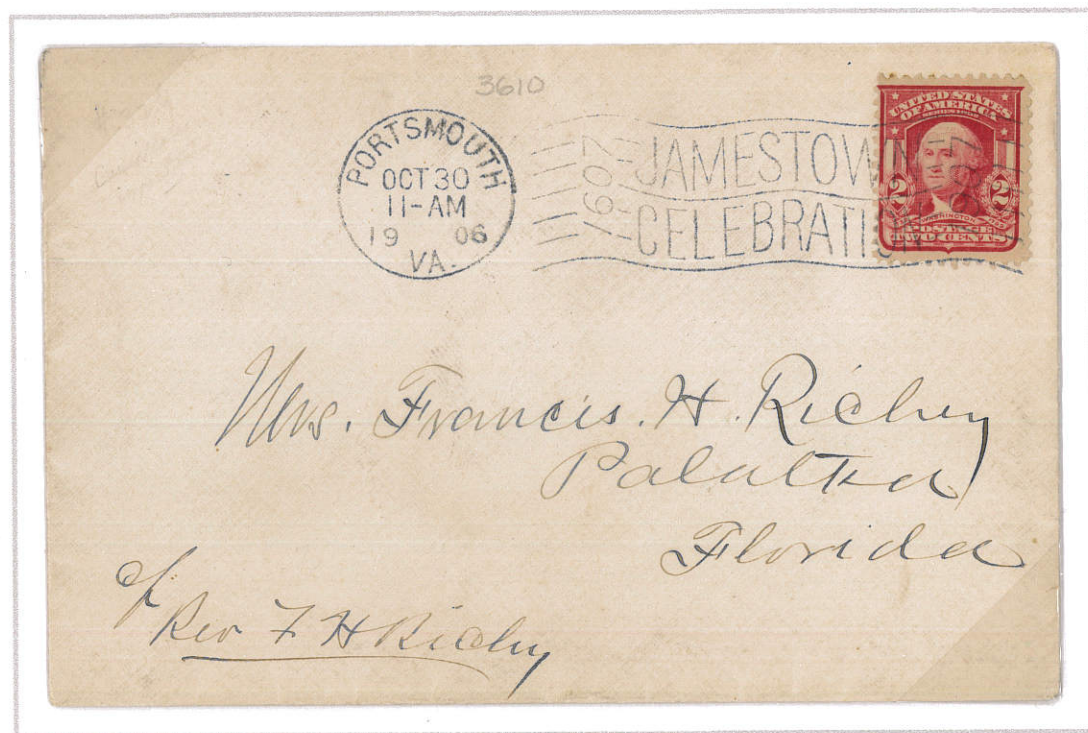 3610
PORTSMOUTH
OCT 30
11-AM
19 06
VA.
1607
JAMESTOWN
CELEBRATION
UNITED STATES
OF AMERICA
SERIES 1902
2 2
WASHINGTON
POSTAGE
TWO CENTS
Mrs. Francis. H. Richey
Palatka
Florida
c/o
Rev F H Richey